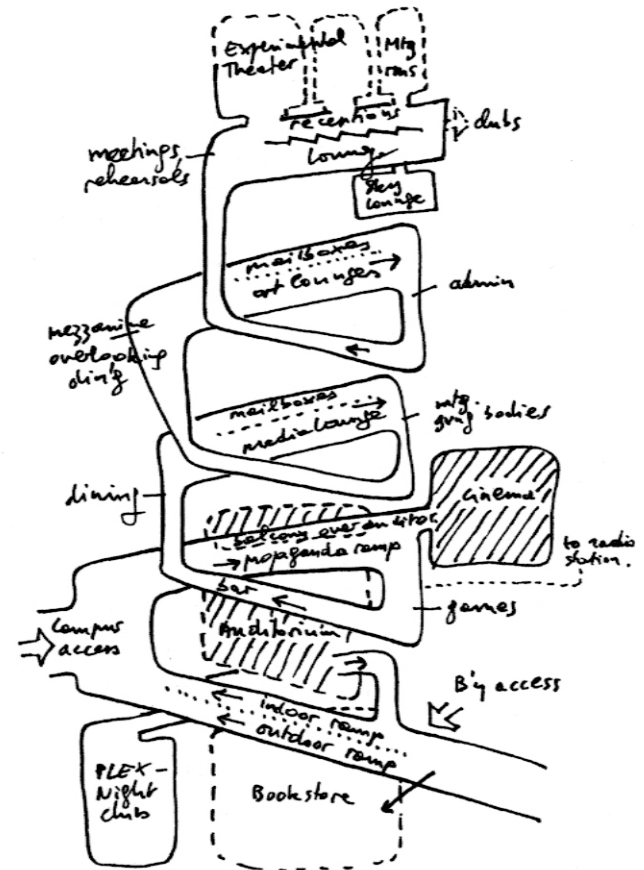 Experimental
Theater
Mtg
rms
receptions
clubs
lounge
meetings,
rehearsals
Sky
lounge
mailboxes
art lounges
admin
mezzanine
overlooking
din'g
mailboxes
media lounge
mtg
gving bodies
dining
Cinema
balcony over auditor.
propaganda ramp
to radio
station.
bar
games
Campus
access
Auditorium
B'y access
indoor ramp
outdoor ramp
PLEX-
Night
club
Bookstore